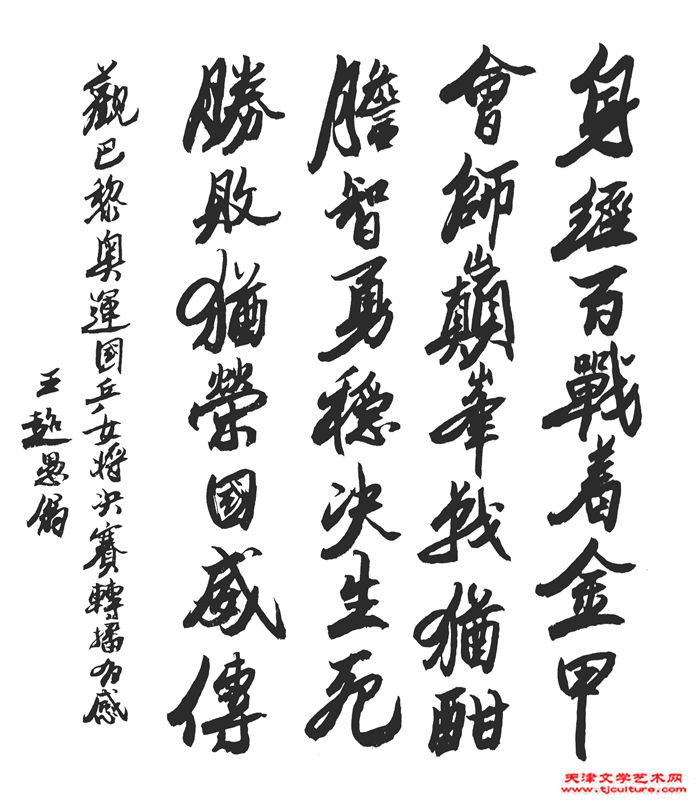 身經百戰着金甲
會師巔峯战猶酣
膽智勇穩决生死
勝敗猶榮國威傳
觀巴黎奥運國乒女將决賽轉播有感
王超愚
天津文学艺术网
www.tjculture.com